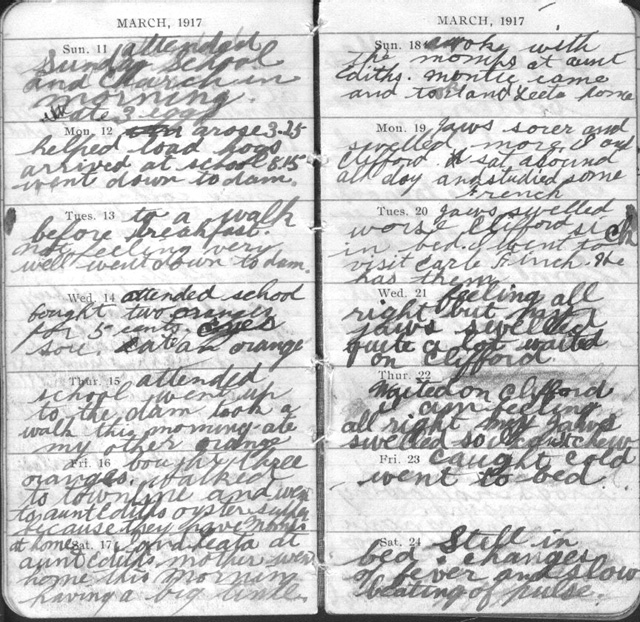 MARCH, 1917
Sun. 11 attended
Sunday School
and Church in
morning.
ate 3 eggs
Mon. 12 arose 3.25
helped load hogs
arrived at school 8.15
went down to dam.
Tues. 13 to a walk
before breakfast.
not feeling very
well went down to dam.
Wed. 14 attended school
bought two oranges
for 5 cents. eyes
sore. eat an orange
Thur. 15 attended
school went up
to the dam took a
walk this morning ate
my other orange
Fri. 16 bought three
oranges. walked
to town line and went
to aunt Ediths oyster supper
because they have momps
at home
Sat. 17 I and Leata at
aunt Ediths mother went
home this morning
having a big time.
MARCH, 1917
Sun. 18 awoke with
the momps at aunt
Ediths. Montie came
and to and Leeta home
Mon. 19 Jaws sorer and
swelled more. I and
Clifford sat around
all day and studied some
French
Tues. 20 Jaws swelled
worse Clifford sick
in bed. I went to
visit Carle Finch. He
has them
Wed. 21 feeling all
right but my
jaws swelled
quite a lot waited
on Clifford
Thur. 22
Waited on Clifford
I am feeling
all right my jaws
swelled so I can't chew
Fri. 23 caught cold
went to bed
Sat. 24 Still in
bed. changes
of fever and slow
beating of pulse.